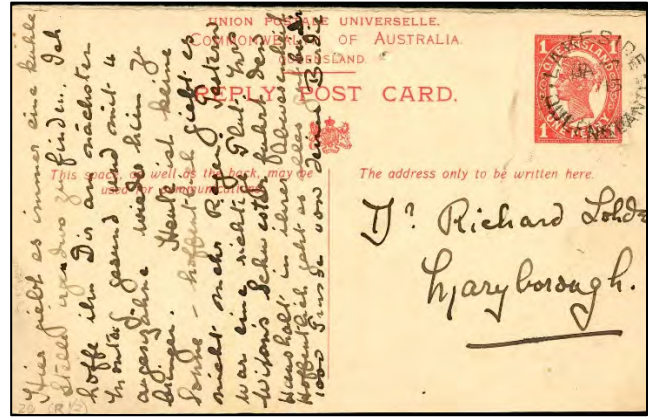 UNION POSTALE UNIVERSELLE.
COMMONWEALTH OF AUSTRALIA.
QUEENSLAND.
REPLY POST CARD.
This space, as well as the back, may be
used for communications.
The address only to be written here.
QUEENSLAND
1 1
1 ONE PENNY 1
Dr. Richard
Maryborough.
Hier giebt es immer eine kühle
Stelle irgendwo zu finden. Ich
hoffe ihn Dir am nächsten
Montag gesund und mit
wieder hin zu
bringen. Heute ist keine
Sonne - hoffentlich giebt es
nicht mehr Regen. Gestern
war eine richtige Glut. Mrs
Wilsons Schwester führt den
Haushalt in ihrer Abwesenheit
Hoffentlich geht es
1000 Grüsse von Deiner
20 (R 1/2)